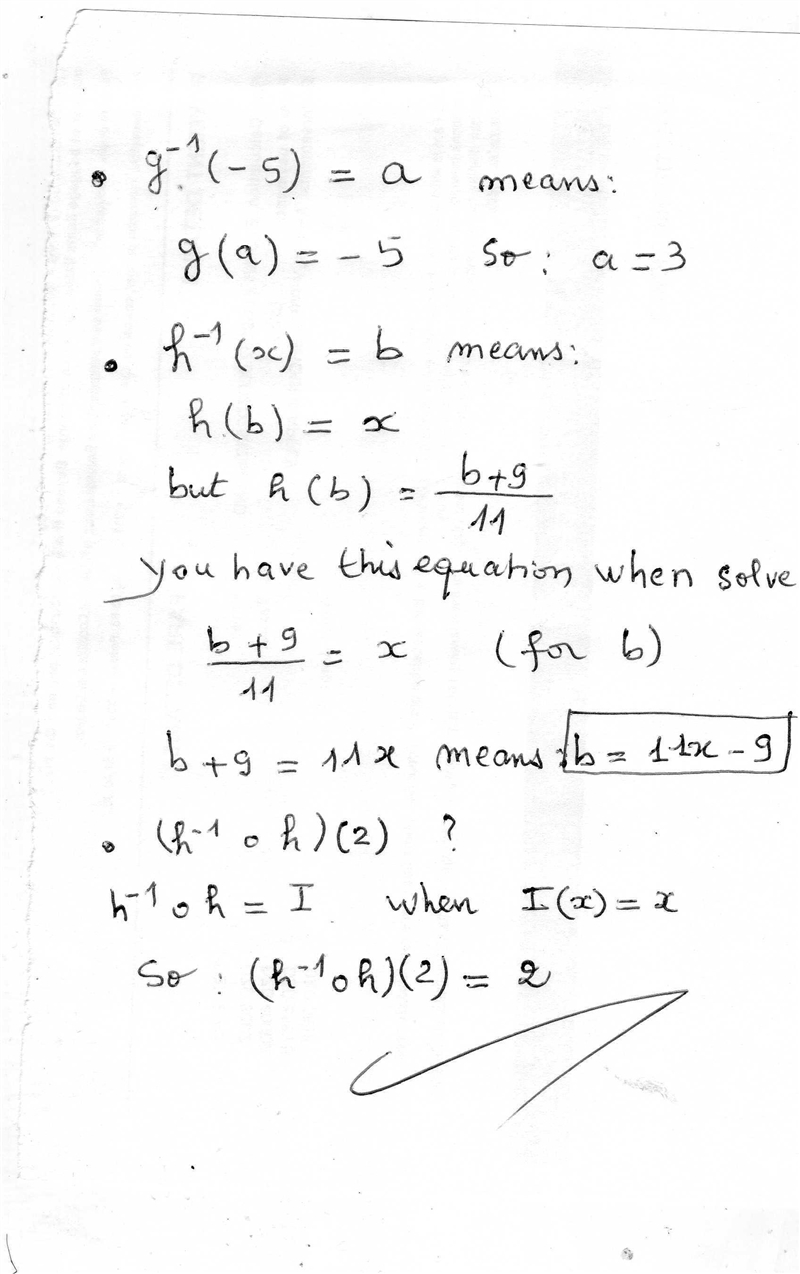 • g⁻¹(-5) = a means:
g(a) = -5 So: a = 3
• h⁻¹(x) = b means:
h(b) = x
but h(b) = (b+9)/11
you have this equation when solve
(b+9)/11 = x (for b)
b+9 = 11x means: b = 11x - 9
• (h⁻¹ o h)(2) ?
h⁻¹ o h = I when I(x) = x
So: (h⁻¹ o h)(2) = 2